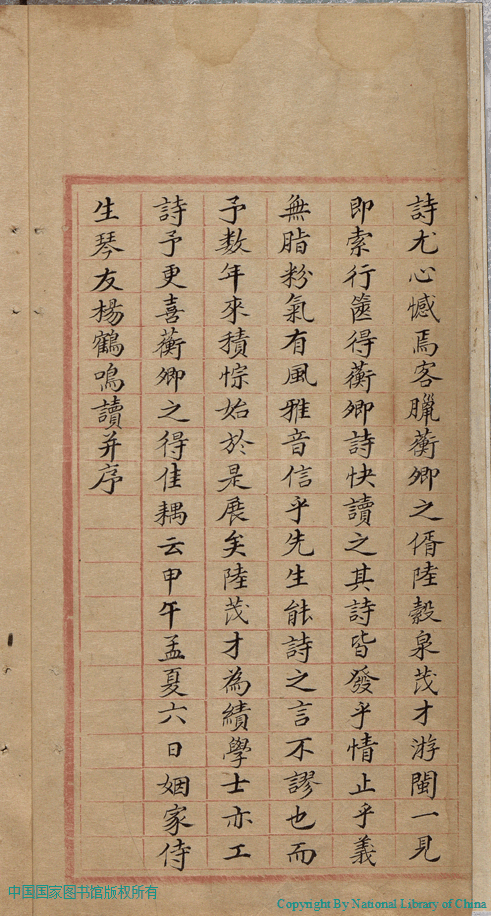 詩尤心憾焉客臘蘅卿之偦陸穀泉茂才游閩一見
即索行篋得蘅卿詩快讀之其詩皆發乎情止乎義
無脂粉氣有風雅音信乎先生能詩之言不謬也而
予数年來積悰始於是展矣陸茂才為績學士亦工
詩予更喜蘅卿之得佳耦云甲午孟夏六日姻家侍
生琴友楊鶴鳴讀并序
中国国家图书馆版权所有
Copyright By National Library of China